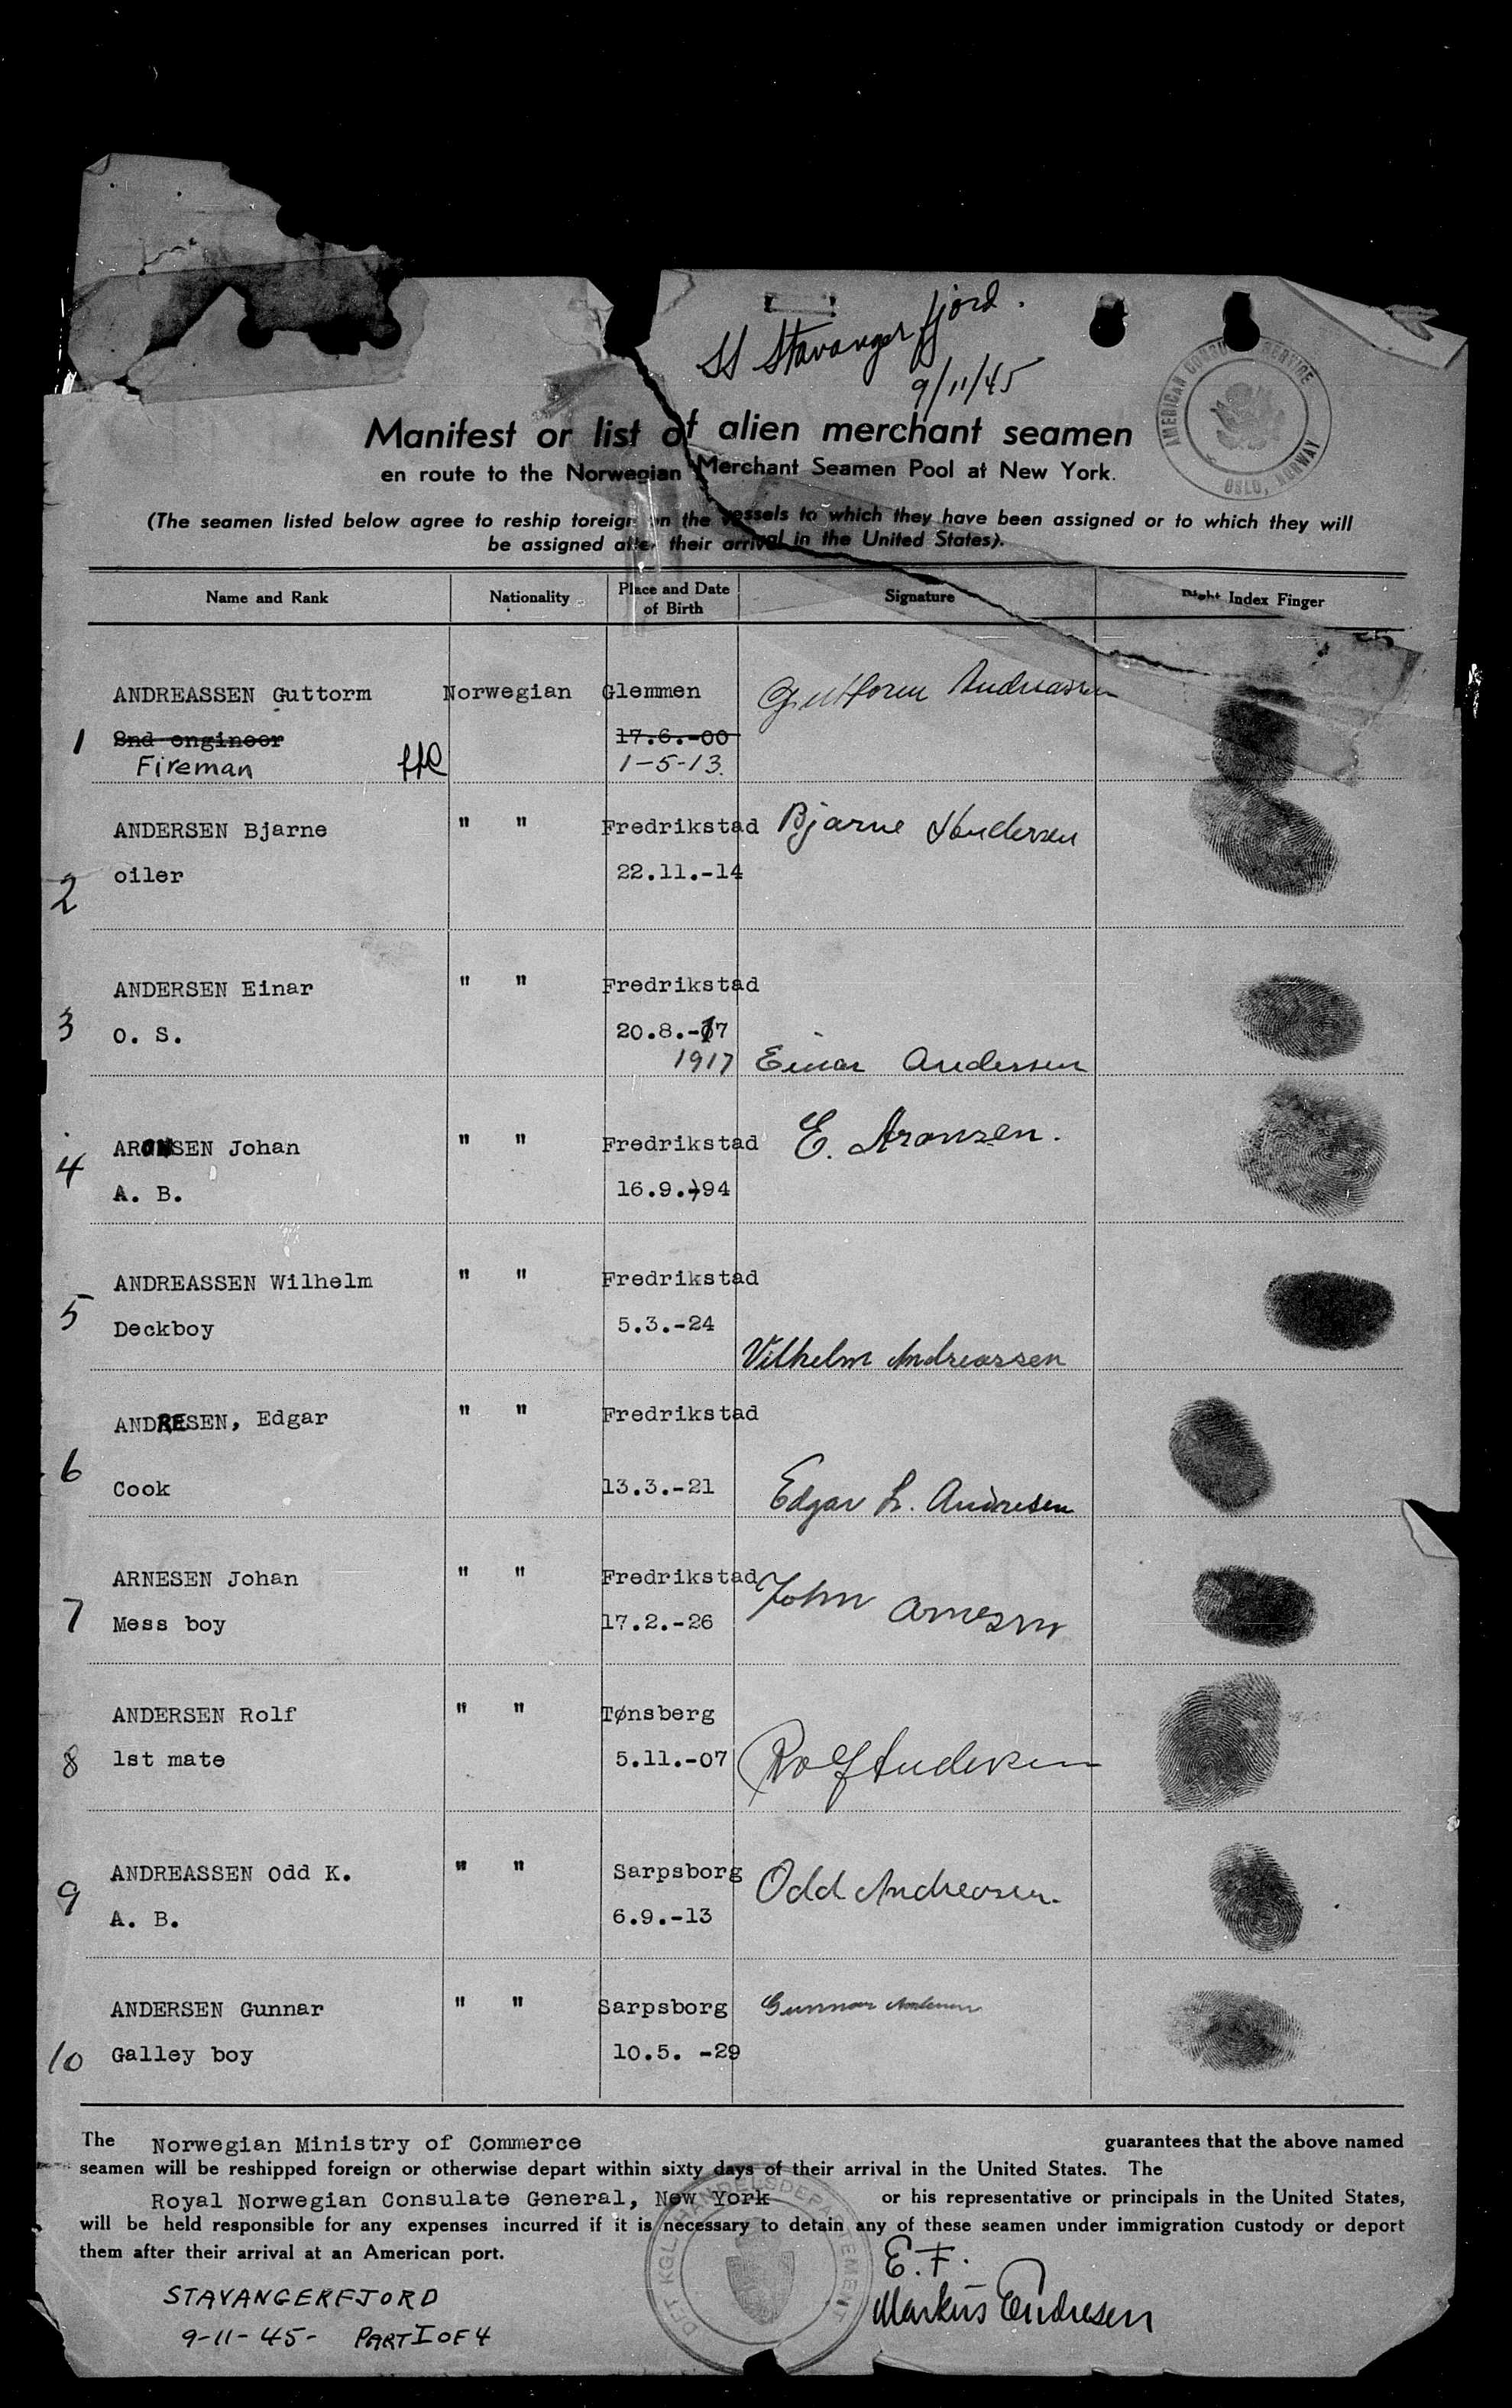 SS Stavangerfjord.
9/11/45
AMERICAN CONSULAR SERVICE
OSLO, NORWAY
Manifest or list of alien merchant seamen
en route to the Norwegian Merchant Seamen Pool at New York.
(The seamen listed below agree to reship foreign on the vessels to which they have been assigned or to which they will
be assigned after their arrival in the United States).
Name and Rank Nationality Place and Date of Birth Signature Right Index Finger
ANDREASSEN Guttorm Norwegian Glemmen Guttorm Andreassen
1 2nd engineer 17.6.-00
Fireman 1-5-13.
ANDERSEN Bjarne " " Fredrikstad Bjarne Andersen
2 oiler 22.11.-14
ANDERSEN Einar " " Fredrikstad
3 O. S. 20.8.-17
1917 Einar Andersen
ARONSEN Johan " " Fredrikstad E. Aronsen.
4 A. B. 16.9.-94
ANDREASSEN Wilhelm " " Fredrikstad
5 Deckboy 5.3.-24
Vilhelm Andreassen
ANDRESEN, Edgar " " Fredrikstad
6 Cook 13.3.-21 Edgar L. Andresen
ARNESEN Johan " " Fredrikstad John Arnesen
7 Mess boy 17.2.-26
ANDERSEN Rolf " " Tønsberg
8 1st mate 5.11.-07 Rolf Andersen
ANDREASSEN Odd K. " " Sarpsborg Odd Andreassen.
9 A. B. 6.9.-13
ANDERSEN Gunnar " " Sarpsborg Gunnar Andersen
10 Galley boy 10.5. -29
The Norwegian Ministry of Commerce guarantees that the above named
seamen will be reshipped foreign or otherwise depart within sixty days of their arrival in the United States. The
Royal Norwegian Consulate General, New York or his representative or principals in the United States,
will be held responsible for any expenses incurred if it is necessary to detain any of these seamen under immigration custody or deport
them after their arrival at an American port.
DET KGL. HANDELSDEPARTEMENT
E. F.
Markus Endresen
STAVANGERFJORD
9-11-45- PART I OF 4